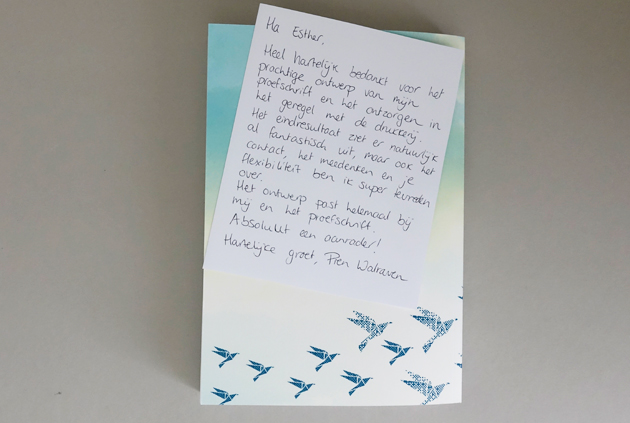 Ha Esther,
Heel hartelijk bedankt voor het
prachtige ontwerp van mijn
proefschrift en het ontzorgen in
het geregel met de drukkerij.
Het eindresultaat ziet er natuurlijk
al fantastisch uit, maar ook het
contact, het meedenken en je
flexibiliteit ben ik super tevreden
over.
Het ontwerp past helemaal bij
mij en het proefschrift.
Absoluut een aanrader!
Hartelijke groet, Pien Walraven